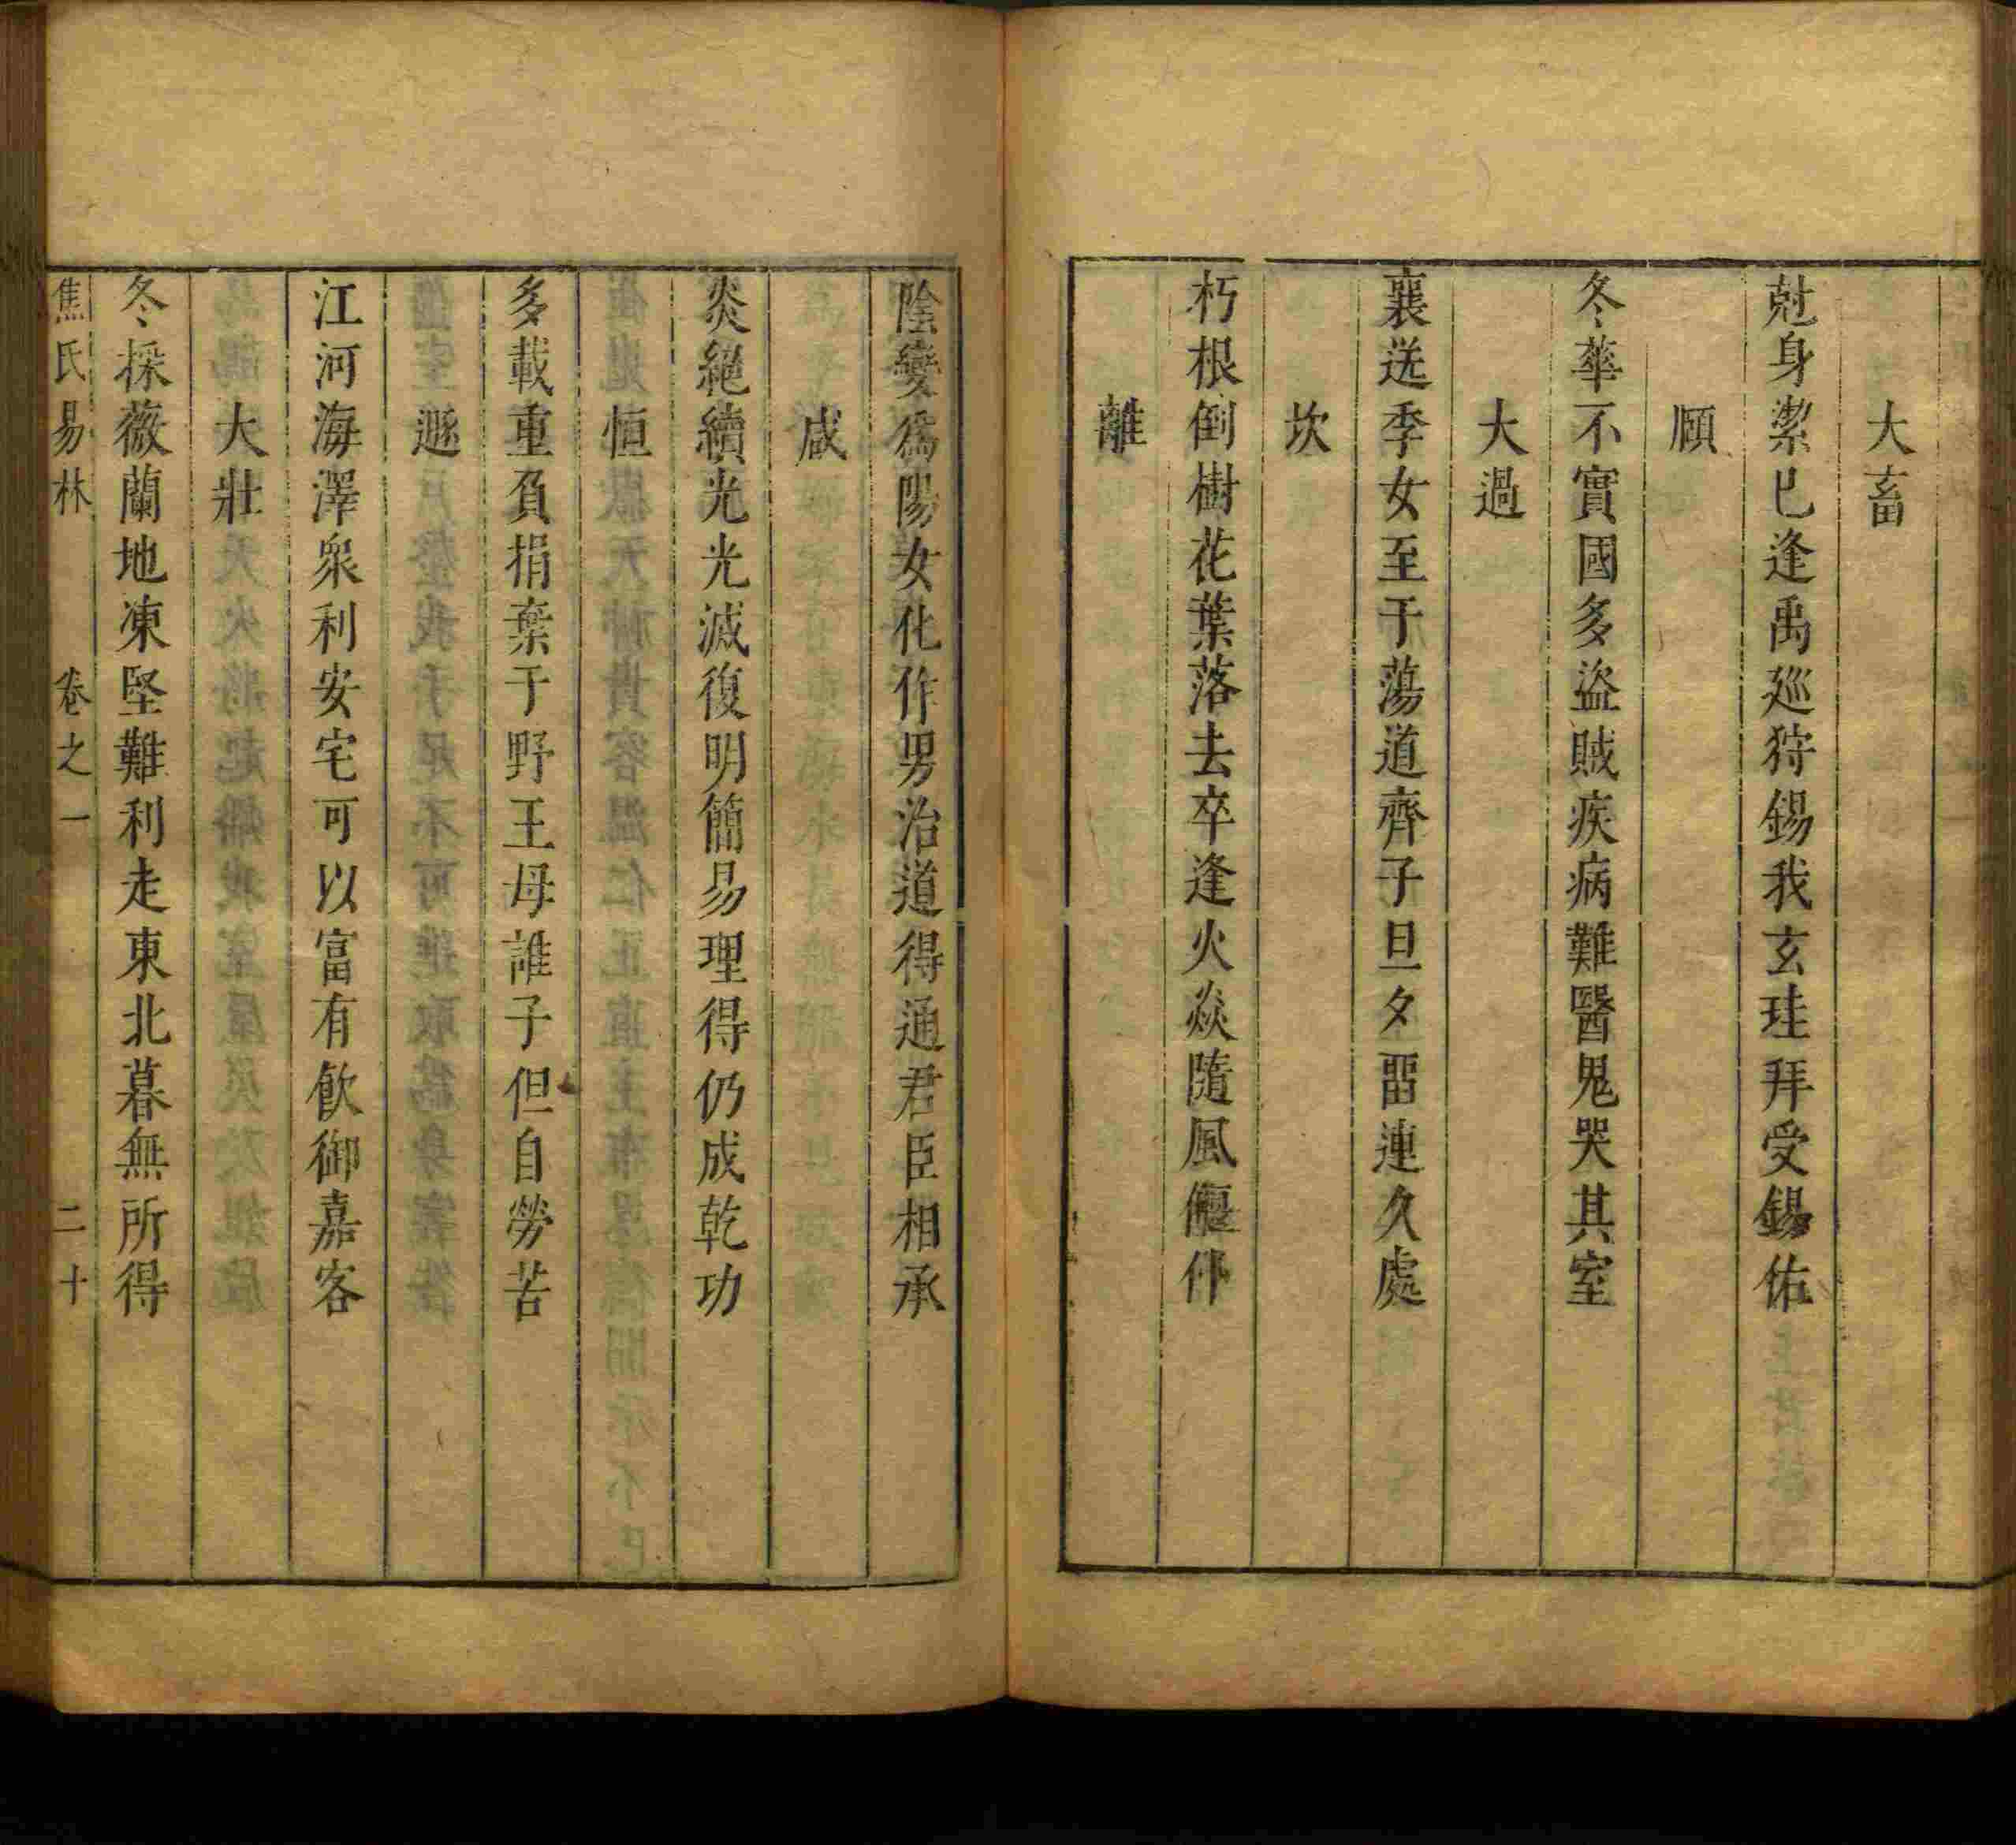 大畜
尅身潔已逢禹廵狩錫我玄珪拜受錫佑
頤
冬華不實國多盜賊疾病難醫鬼哭其室
大過
襄送季女至于蕩道齊子旦夕畱連久處
坎
朽根倒樹花葉落去卒逢火焱隨風偃仆
離
陰變爲陽女化作男治道得通君臣相承
咸
炎絕續光光滅復明簡易理得仍成乾功
恒
多載重負捐棄于野王母誰子但自勞苦
遯
江河海澤衆利安宅可以富有飲御嘉客
大壯
冬採薇蘭地凍堅難利走東北暮無所得
焦氏易林 卷之一 二十